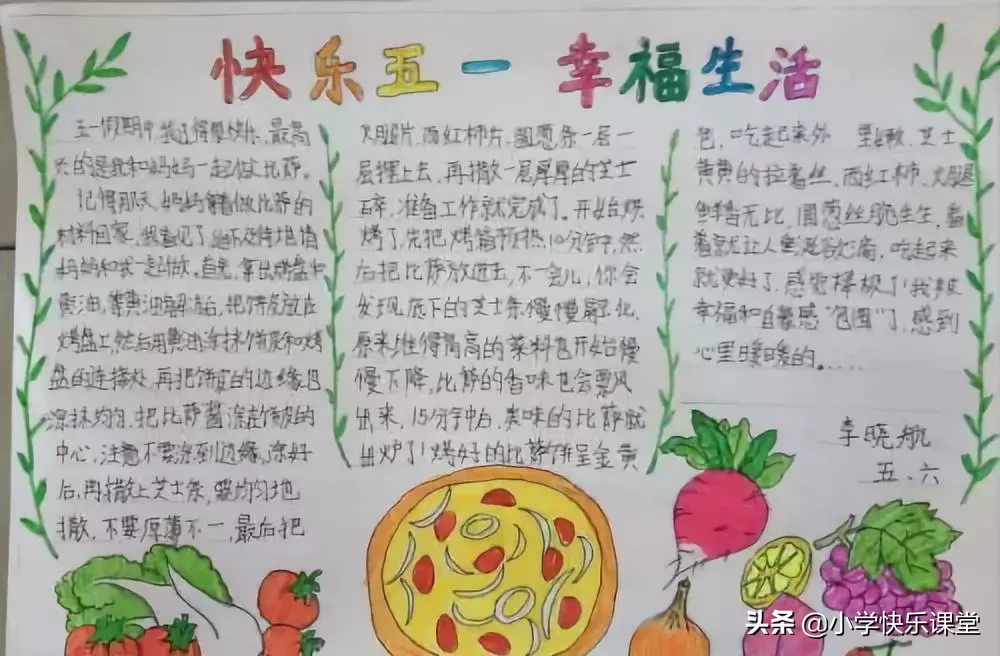 快乐五一 幸福生活
五一假期中,我过得很快乐,最高
兴的是我和妈妈一起做比萨。
记得那天,妈妈拿着做比萨的
材料回家,我看见了,迫不及待地请
妈妈和我一起做。首先,拿出烤盘和
黄油,等黄油解冻后,把饼皮放在
烤盘上,然后用黄油涂抹饼皮和烤
盘的连接处,再把饼皮的边缘也
涂抹均匀,把比萨酱涂在饼皮的
中心,注意不要涂到边缘,涂好
后,再撒上芝士条,要均匀地
撒,不要厚薄不一,最后把
火腿片,西红柿片,圆葱条一层一
层摆上去,再撒一层厚厚的芝士
碎,准备工作就完成了。开始烘
烤了,先把烤箱预热10分钟,然
后把比萨放进去,不一会儿,你会
发现底下的芝士条慢慢融化,
原来堆得高高的菜料也开始慢
慢下降,比萨的香味也会飘
出来,15分钟后,美味的比萨就
出炉了!烤好的比萨饼呈金黄
色,吃起来外 里嫩,芝士
黄黄的拉着丝,西红柿、火腿
鲜香无比,圆葱丝脆生生,看
着就让人赏心悦目,吃起来
就更好了,感觉棒极了!我被
幸福和自豪感“包围”了,感到
心里暖暖的......
李晓航
五、六
头条 @小学快乐课堂